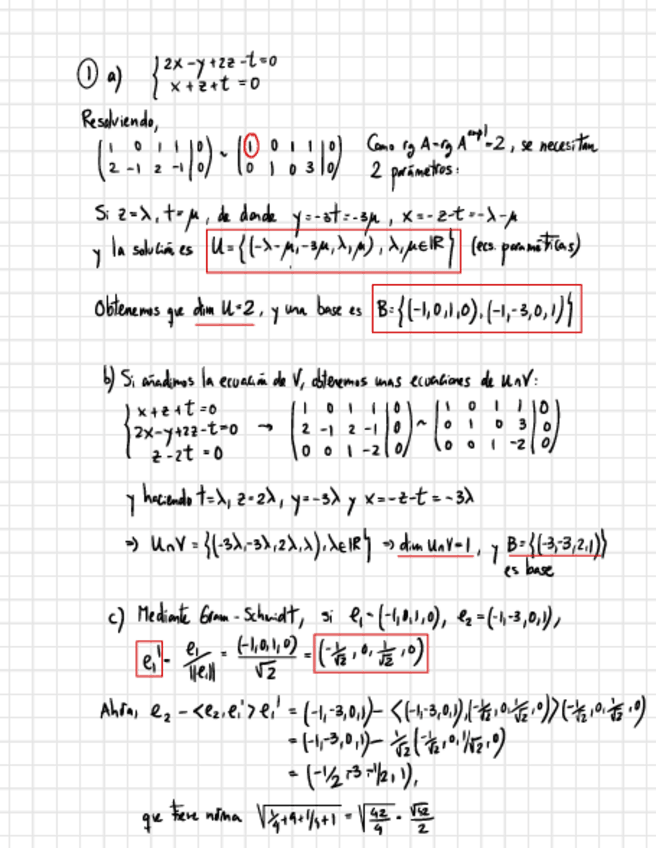 ① a) { 2x-y+2z-t=0
x+z+t=0
Resolviendo,
( 1 0 1 1 | 0 ) ~ ( 1 0 1 1 | 0 ) Como rg A=rg A^ampl=2, se necesitan
( 2 -1 2 -1 | 0 ) ( 0 1 0 3 | 0 ) 2 parámetros:
Si z=λ, t=μ, de donde y=-3t=-3μ, x=-z-t=-λ-μ
y la solución es U={(-λ-μ,-3μ,λ,μ), λ,μ∈ℝ} (ecs. paramétricas)
Obtenemos que dim U=2, y una base es B={(-1,0,1,0),(-1,-3,0,1)}
b) Si añadimos la ecuación de V, obtenemos unas ecuaciones de U∩V:
{ x+z+t=0 ( 1 0 1 1 | 0 ) ( 1 0 1 1 | 0 )
2x-y+2z-t=0 → ( 2 -1 2 -1 | 0 ) ~ ( 0 1 0 3 | 0 )
z-2t=0 ( 0 0 1 -2 | 0 ) ( 0 0 1 -2 | 0 )
y haciendo t=λ, z=2λ, y=-3λ y x=-z-t=-3λ
⇒ U∩V={(-3λ,-3λ,2λ,λ),λ∈ℝ} ⇒ dim U∩V=1, y B={(-3,-3,2,1)}
es base
c) Mediante Gram-Schmidt, si e₁=(-1,0,1,0), e₂=(-1,-3,0,1),
e₁'= e₁/||e₁|| = (-1,0,1,0)/√2 = (-1/√2, 0, 1/√2, 0)
Ahora, e₂-<e₂,e₁'>e₁' = (-1,-3,0,1)-<(-1,-3,0,1),(-1/√2,0,1/√2,0)>(-1/√2,0,1/√2,0)
= (-1,-3,0,1)-1/√2(-1/√2,0,1/√2,0)
= (-1/2,-3,-1/2,1),
que tiene norma √(1/4+9+1/4+1) = √(42/4) = √42/2